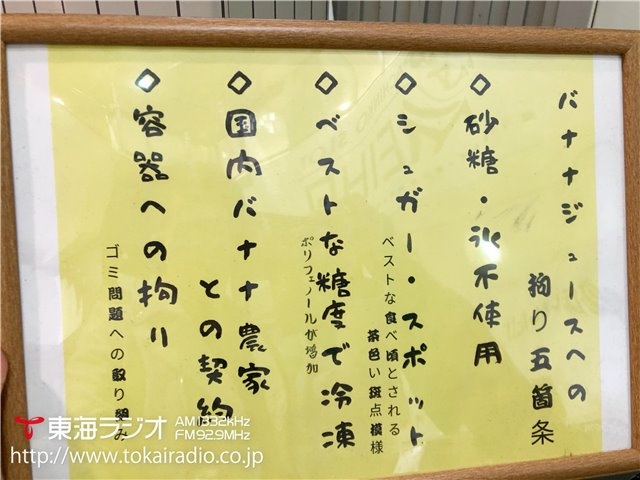 バナナジュースへの
拘り五箇条
◇砂糖・氷不使用
◇シュガー・スポット
ベストな食べ頃とされる
茶色い斑点模様
◇ベストな糖度で冷凍
ポリフェノールが増加
◇国内バナナ農家
との契約
◇容器への拘り
ゴミ問題への取り組み
東海ラジオ AM1332kHz
FM92.9MHz
http://www.tokairadio.co.jp